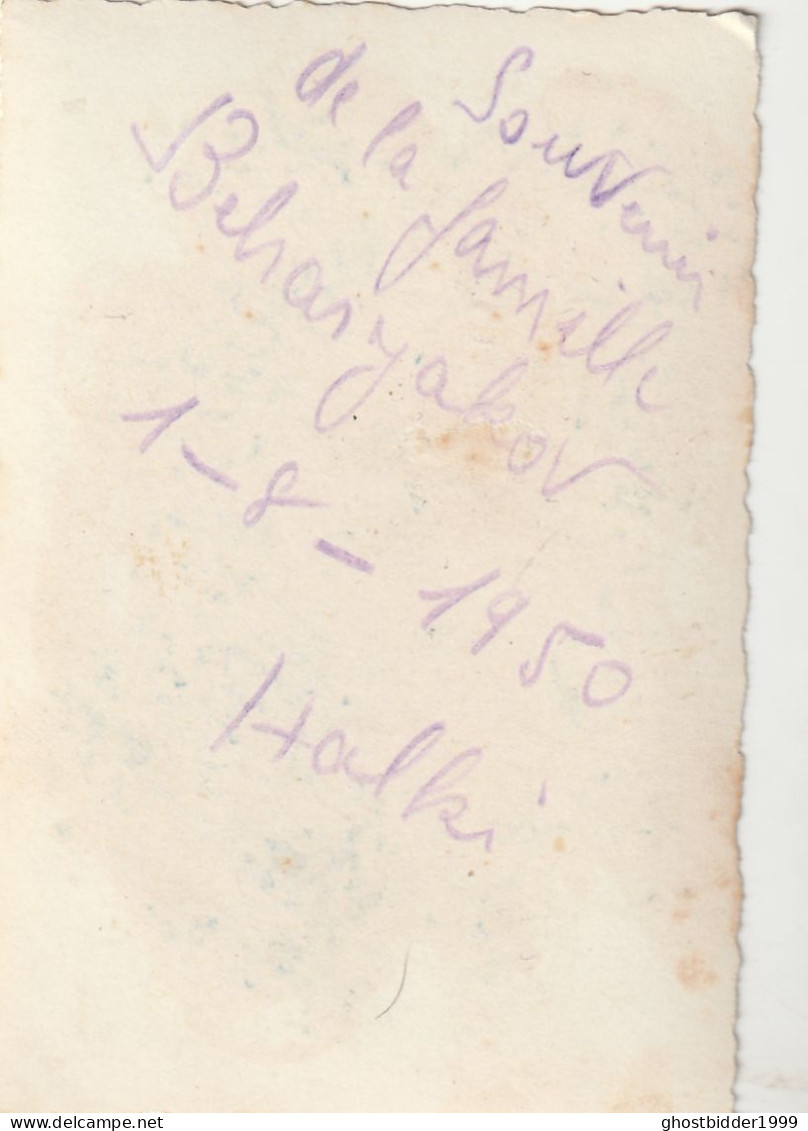 Souvenir
de la famille
Beharyakov
1-8-1950
Halki
delcampe.net
ghostbidder1999